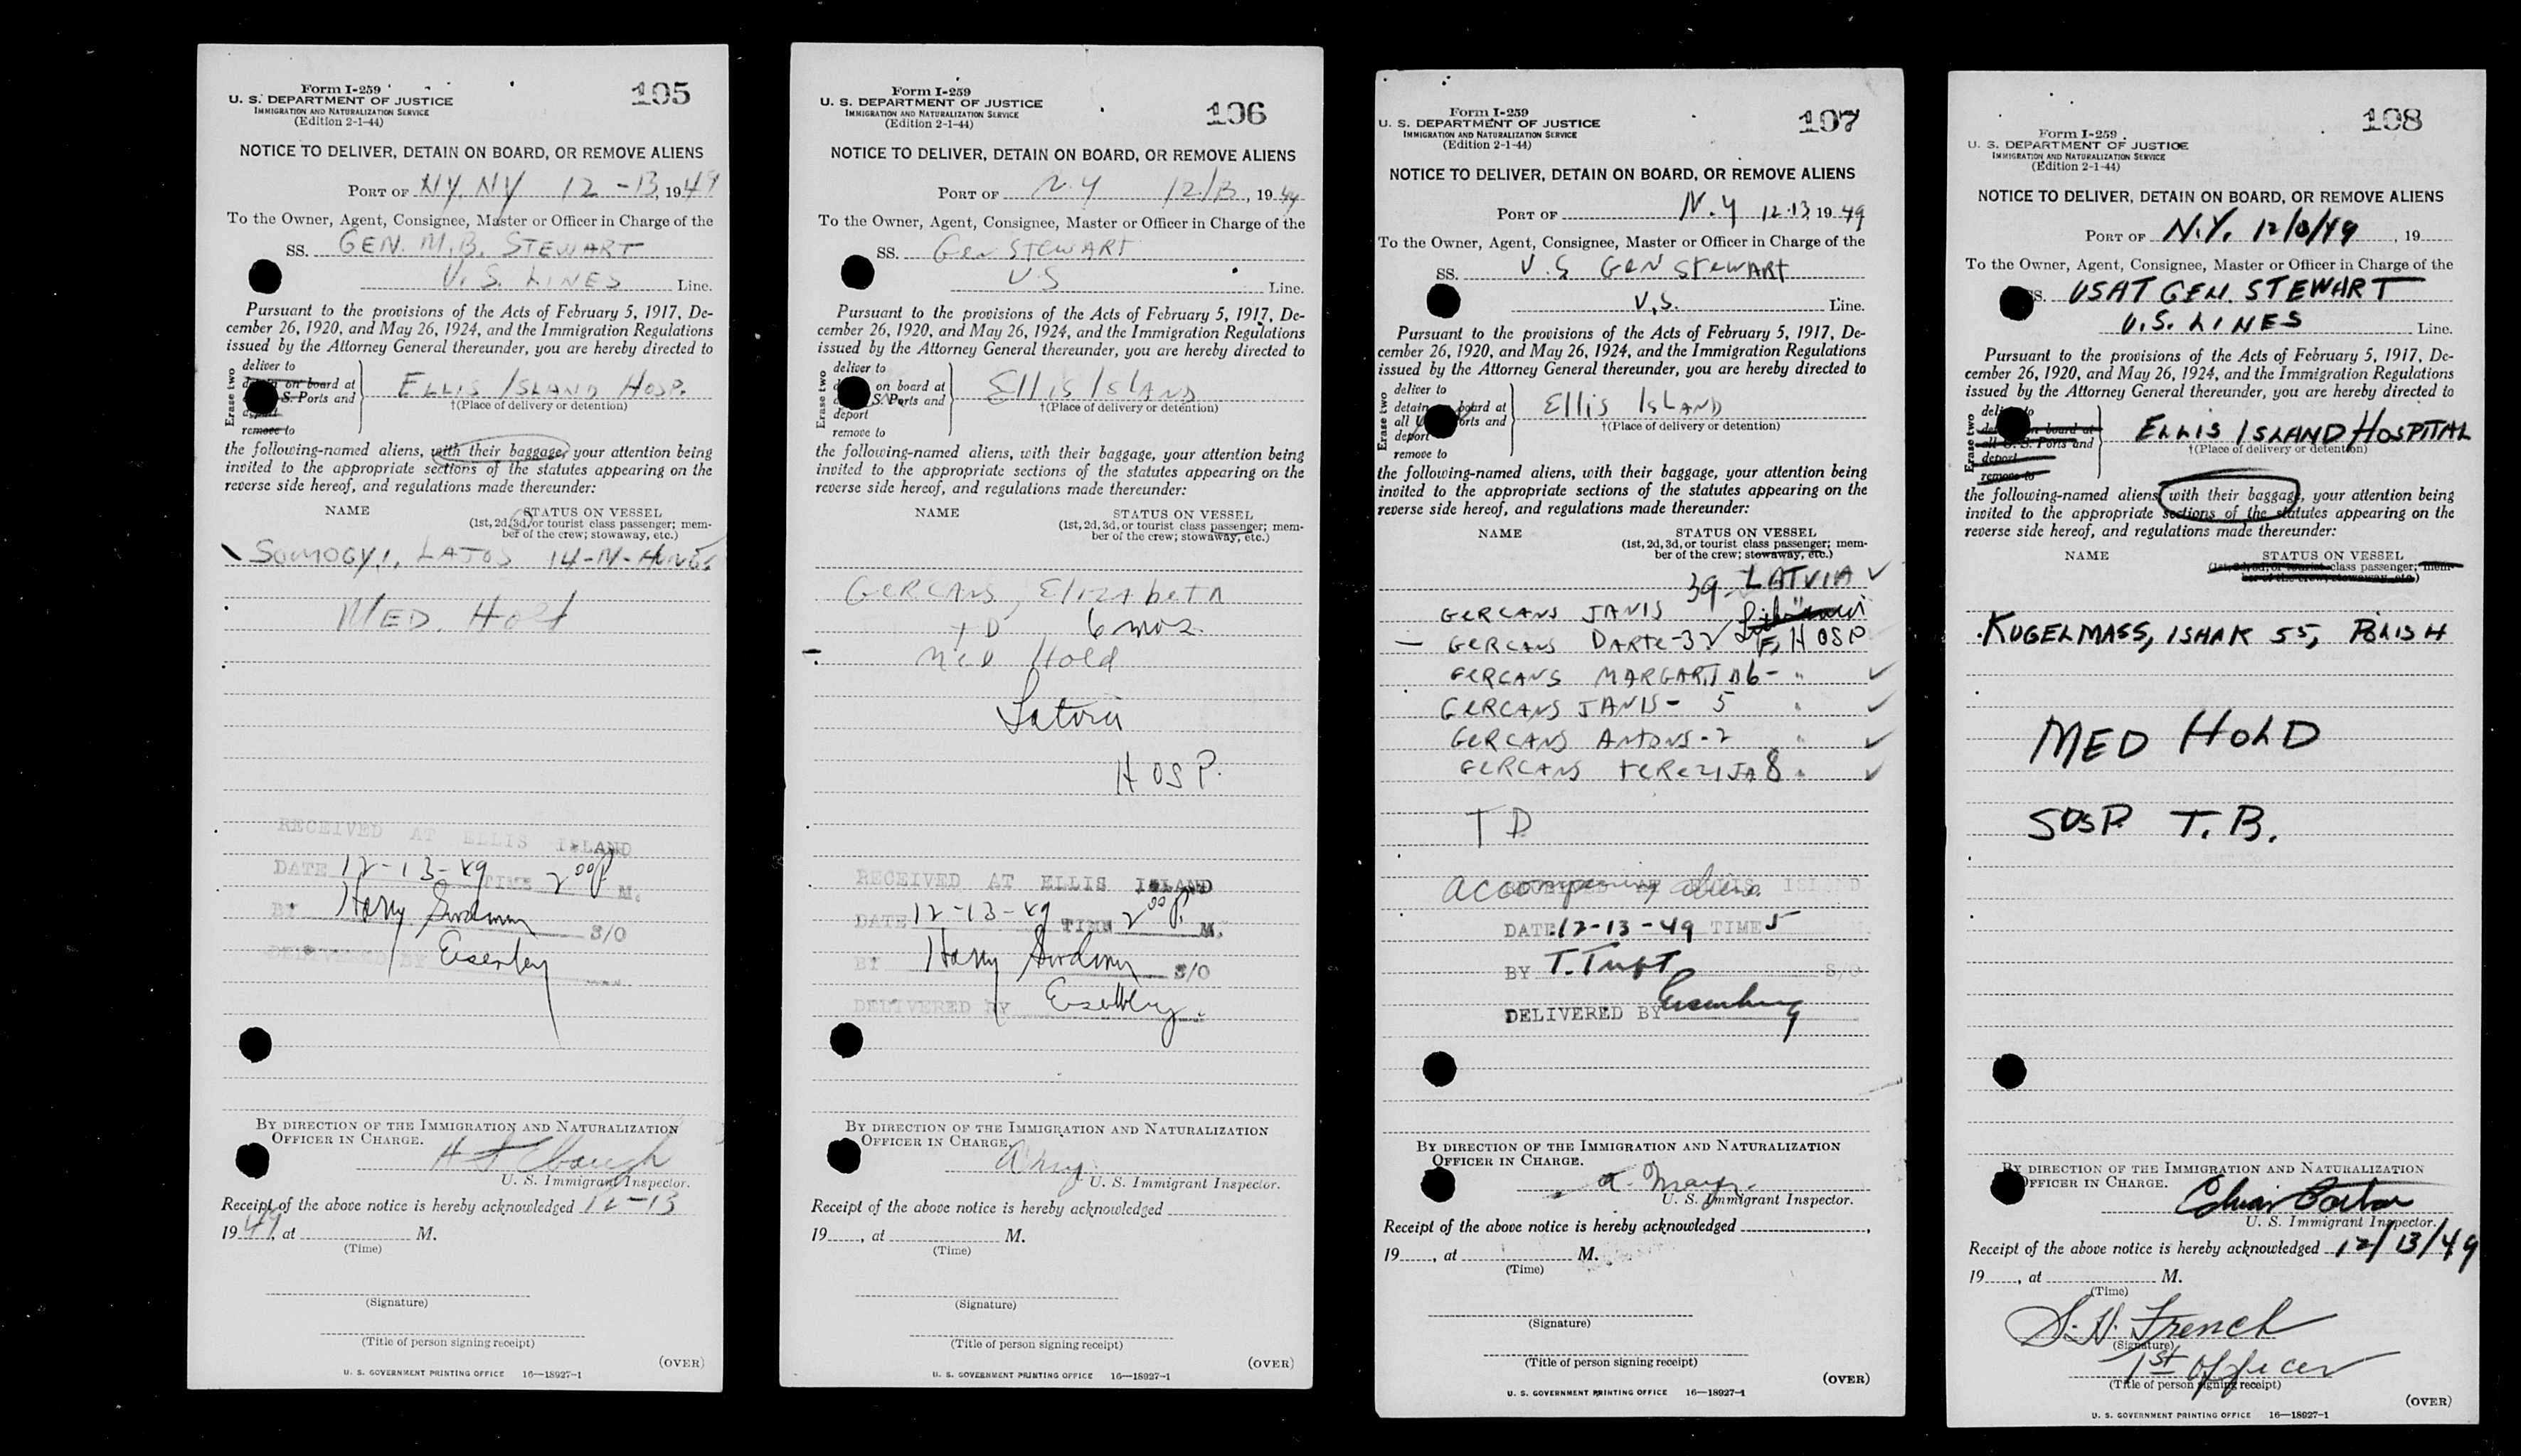 Form I-259
U. S. DEPARTMENT OF JUSTICE
IMMIGRATION AND NATURALIZATION SERVICE
(Edition 2-1-44)
105
NOTICE TO DELIVER, DETAIN ON BOARD, OR REMOVE ALIENS
PORT OF NY, NY 12-13, 1949
To the Owner, Agent, Consignee, Master or Officer in Charge of the
SS. GEN. M.B. STEWART
U.S. LINES Line.
Pursuant to the provisions of the Acts of February 5, 1917, De-
cember 26, 1920, and May 26, 1924, and the Immigration Regulations
issued by the Attorney General thereunder, you are hereby directed to
Erase two
deliver to
on board at
S. Ports and
deport
remove to
ELLIS ISLAND HOSP.
†(Place of delivery or detention)
the following-named aliens, with their baggage, your attention being
invited to the appropriate sections of the statutes appearing on the
reverse side hereof, and regulations made thereunder:
NAME STATUS ON VESSEL
(1st, 2d, 3d, or tourist class passenger; mem-
ber of the crew; stowaway, etc.)
SOMOGYI, LAJOS 14-M-HUNG.
MED. Hold
RECEIVED AT ELLIS ISLAND
DATE 12-13-49 TIME 2 00 P M.
BY Harry S/O
DELIVERED BY
BY DIRECTION OF THE IMMIGRATION AND NATURALIZATION
OFFICER IN CHARGE.
U. S. Immigrant Inspector.
Receipt of the above notice is hereby acknowledged 12-13
1949, at M.
(Time)
(Signature)
(Title of person signing receipt)
(OVER)
U. S. GOVERNMENT PRINTING OFFICE 16—18927-1
Form I-259
U. S. DEPARTMENT OF JUSTICE
IMMIGRATION AND NATURALIZATION SERVICE
(Edition 2-1-44)
106
NOTICE TO DELIVER, DETAIN ON BOARD, OR REMOVE ALIENS
PORT OF N.Y 12/13, 1949
To the Owner, Agent, Consignee, Master or Officer in Charge of the
SS. Gen STEWART
U S Line.
Pursuant to the provisions of the Acts of February 5, 1917, De-
cember 26, 1920, and May 26, 1924, and the Immigration Regulations
issued by the Attorney General thereunder, you are hereby directed to
Erase two
deliver to
on board at
S. Ports and
deport
remove to
Ellis ISLAND
†(Place of delivery or detention)
the following-named aliens, with their baggage, your attention being
invited to the appropriate sections of the statutes appearing on the
reverse side hereof, and regulations made thereunder:
NAME STATUS ON VESSEL
(1st, 2d, 3d, or tourist class passenger; mem-
ber of the crew; stowaway, etc.)
GERCANS, ElizAbeTA
TD 6 mos.
Med Hold
Latvia
HOSP.
RECEIVED AT ELLIS ISLAND
DATE 12-13-49 TIME 2 00 P. M.
BY Harry S/O
DELIVERED BY
BY DIRECTION OF THE IMMIGRATION AND NATURALIZATION
OFFICER IN CHARGE.
U. S. Immigrant Inspector.
Receipt of the above notice is hereby acknowledged
19, at M.
(Time)
(Signature)
(Title of person signing receipt)
(OVER)
U. S. GOVERNMENT PRINTING OFFICE 16—18927-1
Form I-259
U. S. DEPARTMENT OF JUSTICE
IMMIGRATION AND NATURALIZATION SERVICE
(Edition 2-1-44)
107
NOTICE TO DELIVER, DETAIN ON BOARD, OR REMOVE ALIENS
PORT OF N.Y 12.13 1949
To the Owner, Agent, Consignee, Master or Officer in Charge of the
SS. U.S GEN STEWART
U.S. Line.
Pursuant to the provisions of the Acts of February 5, 1917, De-
cember 26, 1920, and May 26, 1924, and the Immigration Regulations
issued by the Attorney General thereunder, you are hereby directed to
Erase two
deliver to
detain board at
all U Ports and
deport
remove to
Ellis ISLAND
†(Place of delivery or detention)
the following-named aliens, with their baggage, your attention being
invited to the appropriate sections of the statutes appearing on the
reverse side hereof, and regulations made thereunder:
NAME STATUS ON VESSEL
(1st, 2d, 3d, or tourist class passenger; mem-
ber of the crew; stowaway, etc.)
39 - LATVIA ✓
GERCANS JANIS "
— GERCANS DARTE-32 F, HOSP
GERCANS MARGARITA 6 - " ✓
GERCANS JANIS - 5 " ✓
GERCANS ANTONS - 2 " ✓
GERCANS TEREZIJA 8 " ✓
TD
accompanying aliens.
RECEIVED AT ELLIS ISLAND
DATE 12-13-49 TIME 5 M.
BY T. Tuft S/O
DELIVERED BY Eisenberg
BY DIRECTION OF THE IMMIGRATION AND NATURALIZATION
OFFICER IN CHARGE.
U. S. Immigrant Inspector.
Receipt of the above notice is hereby acknowledged ,
19, at M.
(Time)
(Signature)
(Title of person signing receipt)
(OVER)
U. S. GOVERNMENT PRINTING OFFICE 16—18927-1
Form I-259
U. S. DEPARTMENT OF JUSTICE
IMMIGRATION AND NATURALIZATION SERVICE
(Edition 2-1-44)
108
NOTICE TO DELIVER, DETAIN ON BOARD, OR REMOVE ALIENS
PORT OF N.Y. 12/13/49, 19
To the Owner, Agent, Consignee, Master or Officer in Charge of the
SS. USAT GEN. STEWART
U.S. LINES Line.
Pursuant to the provisions of the Acts of February 5, 1917, De-
cember 26, 1920, and May 26, 1924, and the Immigration Regulations
issued by the Attorney General thereunder, you are hereby directed to
Erase two
deliver to
on board at
all U. S. Ports and
deport
remove to
ELLIS ISLAND HOSPITAL
†(Place of delivery or detention)
the following-named aliens with their baggage, your attention being
invited to the appropriate sections of the statutes appearing on the
reverse side hereof, and regulations made thereunder:
NAME STATUS ON VESSEL
(1st, 2d, 3d, or tourist class passenger; mem-
ber of the crew; stowaway, etc.)
KUGELMASS, ISHAK 55, POLISH
MED HOLD
SUSP. T.B.
BY DIRECTION OF THE IMMIGRATION AND NATURALIZATION
OFFICER IN CHARGE.
U. S. Immigrant Inspector.
Receipt of the above notice is hereby acknowledged 12/13/49
19, at M.
(Time)
S. N. French
(Signature)
1st Officer
(Title of person signing receipt)
(OVER)
U. S. GOVERNMENT PRINTING OFFICE 16—18927-1